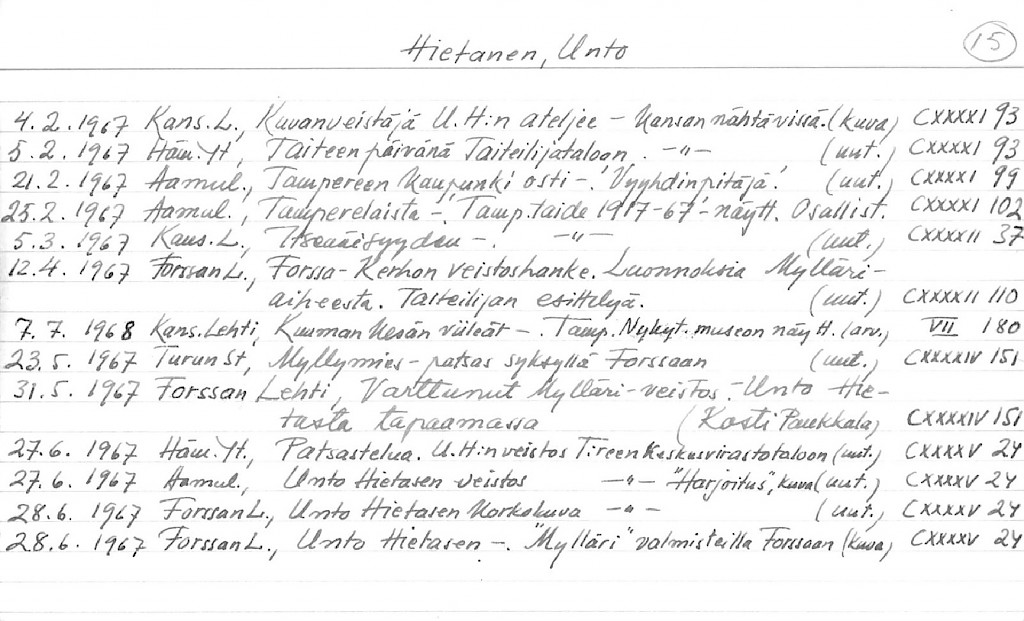 Hietanen, Unto 15
4.2.1967 Kans.L., Kuvanveistäjä U.H:n ateljee – Kansan nähtävissä. (kuva) CXXXXI 93
5.2.1967 Häm.Yt, Taiteen päivänä Taiteilijataloon. -"- (uut.) CXXXXI 93
21.2.1967 Aamul., Tampereen Kaupunki osti –. 'Vyyhdinpitäjä.' (uut.) CXXXXI 99
25.2.1967 Aamul., Tamperelaista –. 'Tamp.taide 1917-67'-näytt. Osallist. CXXXXI 102
5.3.1967 Kans.L., Itsenäisyyden –. -"- (uut.) CXXXXII 37
12.4.1967 Forssan L., Forssa-Kerhon veistoshanke. Luonnoksia Mylläri-
aiheesta. Taiteilijan esittelyä. (uut.) CXXXXII 110
7.7.1968 Kans.Lehti, Kuuman Kesän viileät –. Tamp. Nykyt.museon näytt. (arv.) VII 180
23.5.1967 Turun St, Myllymies-patsas syksyllä Forssaan (uut.) CXXXXIV 151
31.5.1967 Forssan Lehti, Varttunut Mylläri-veistos. Unto Hie-
tasta tapaamassa (Kosti Paukkala) CXXXXIV 151
27.6.1967 Häm.Yt., Patsastelua. U.H:n veistos T:reen Keskusvirastotaloon (uut.) CXXXXV 24
27.6.1967 Aamul., Unto Hietasen veistos -"- "Harjoitus", kuva (uut.) CXXXXV 24
28.6.1967 Forssan L., Unto Hietasen Korkokuva -"- (uut.) CXXXXV 24
28.6.1967 Forssan L., Unto Hietasen –. "Mylläri" valmisteilla Forssaan (kuva) CXXXXV 24